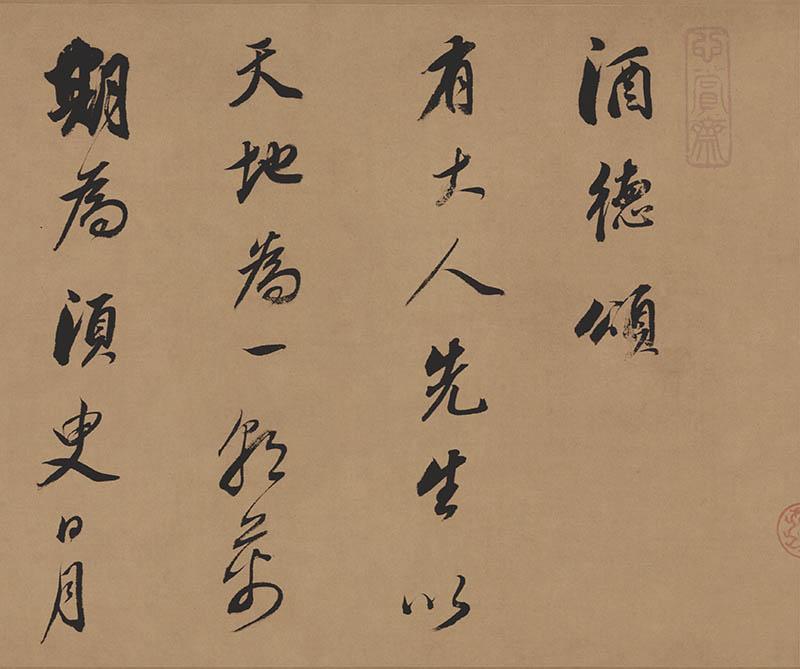 玄賞齋
酒德頌
有大人先生以
天地為一朝萬
期為須臾日月